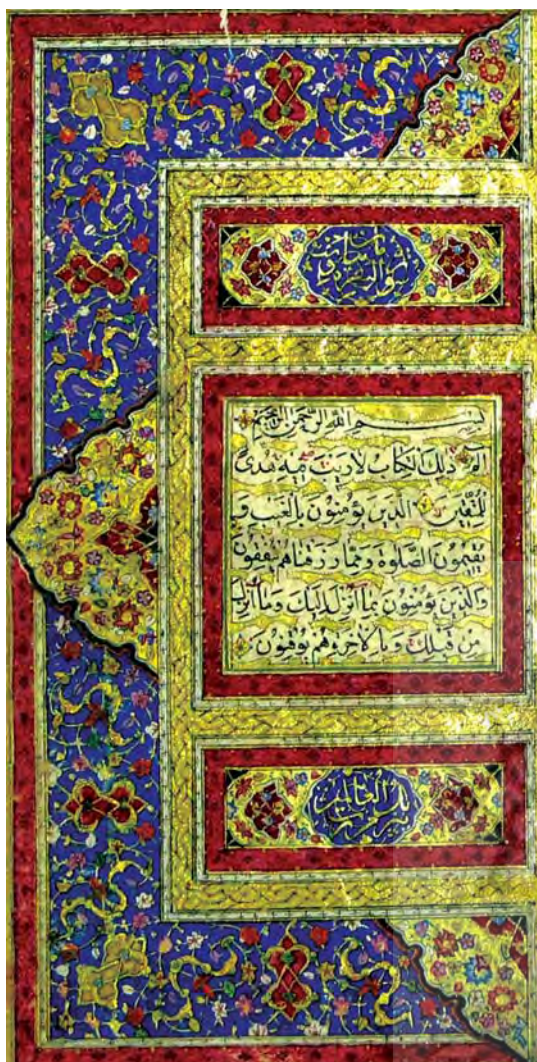 سورة البقرة
بِسْمِ اللهِ الرَّحْمٰنِ الرَّحِيمِ
الم ذٰلِكَ الكِتَابُ لَا رَيْبَ فِيهِ هُدىً
لِلْمُتَّقِينَ الَّذِينَ يُؤْمِنُونَ بِالْغَيْبِ وَ
يُقِيمُونَ الصَّلٰوةَ وَمِمَّا رَزَقْنَاهُمْ يُنْفِقُونَ
وَالَّذِينَ يُؤْمِنُونَ بِمَا اُنْزِلَ اِلَيْكَ وَمَا اُنْزِلَ
مِنْ قَبْلِكَ وَبِالْاٰخِرَةِ هُمْ يُوقِنُونَ
تنزيل من رب العالمين